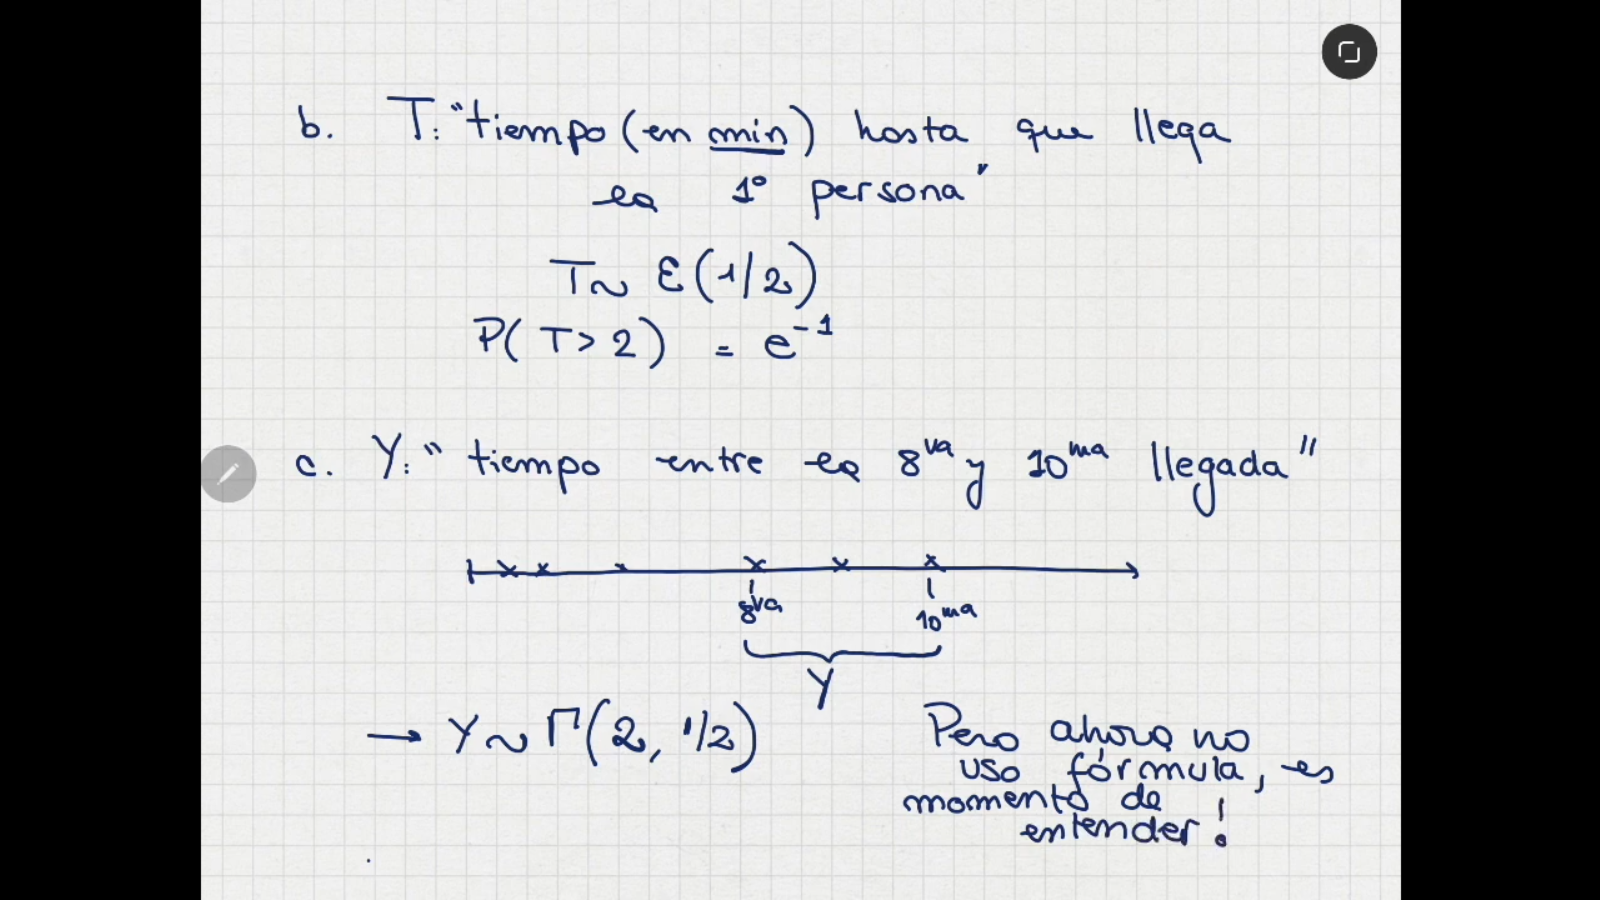 b. T: "tiempo (en min) hasta que llega
la 1º persona"
T ~ Ɛ(1/2)
P( T > 2 ) = e^-1
c. Y: " tiempo entre la 8va y 10ma llegada "
8va 10ma
Y
→ Y ~ Γ(2, 1/2)
Pero ahora no
uso fórmula, es
momento de
entender!